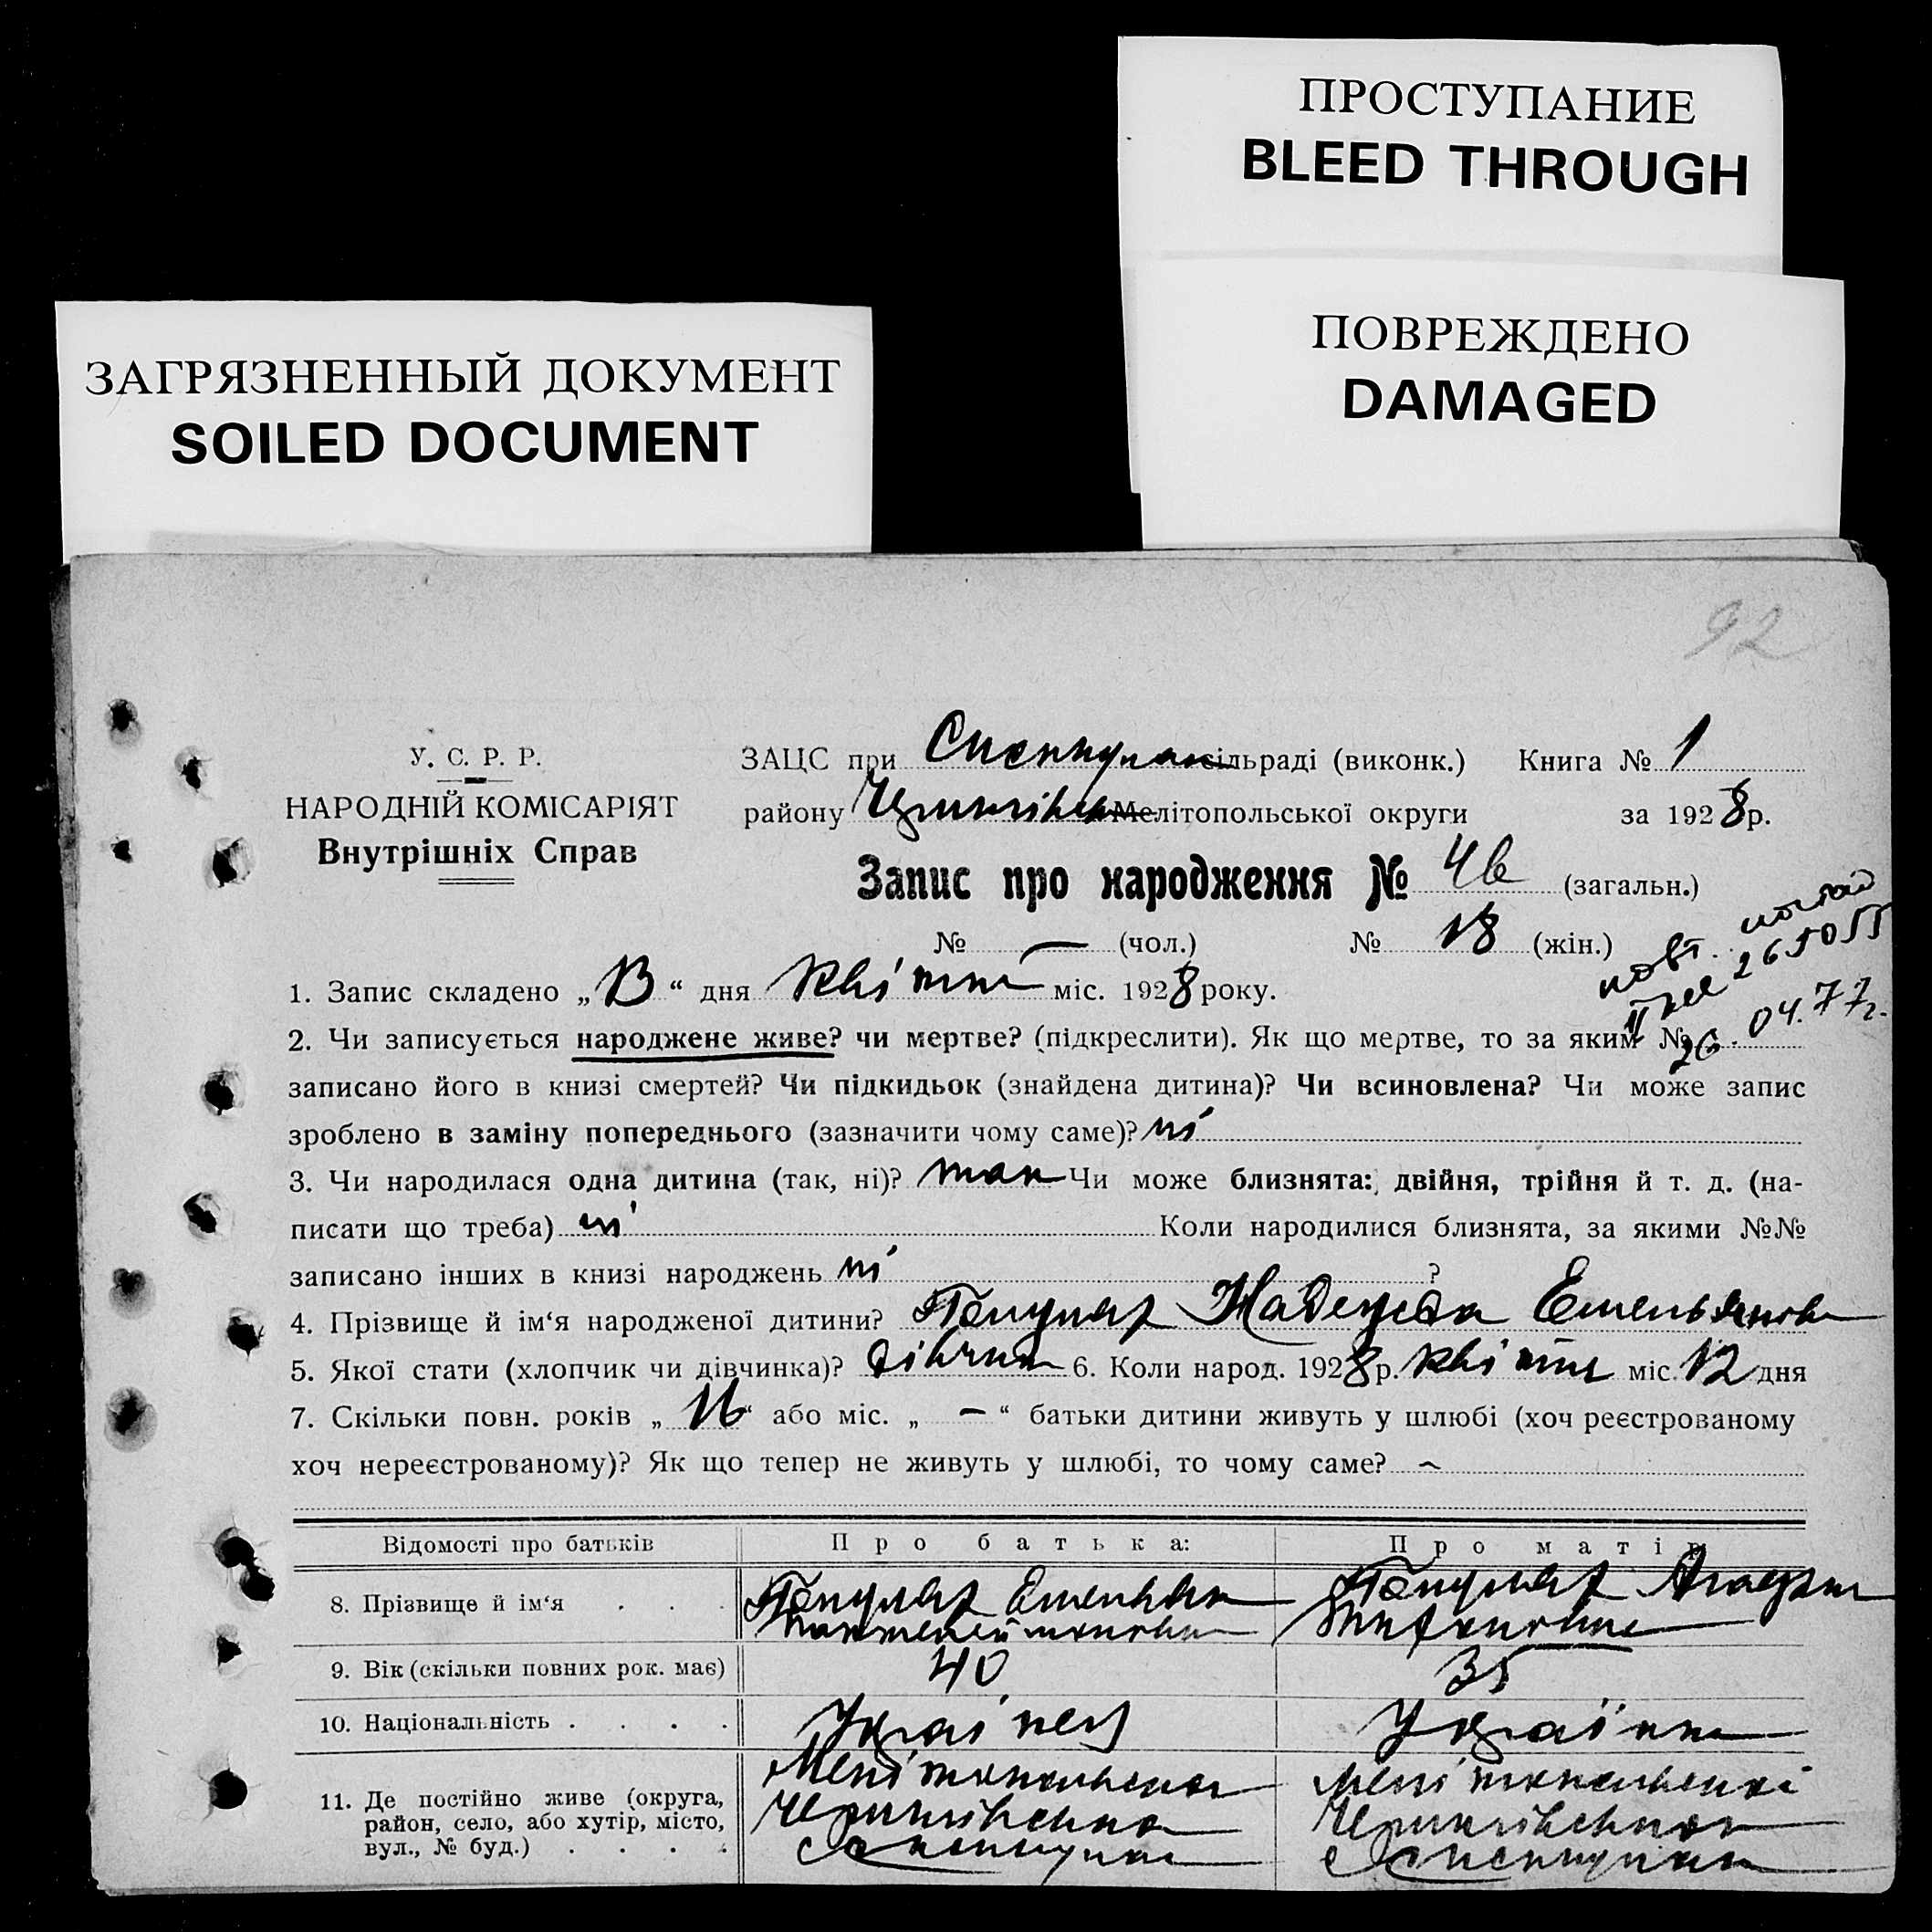 ПРОСТУПАНИЕ
BLEED THROUGH
ПОВРЕЖДЕНО
DAMAGED
ЗАГРЯЗНЕННЫЙ ДОКУМЕНТ
SOILED DOCUMENT
92
У. С. Р. Р.
НАРОДНІЙ КОМІСАРІЯТ
Внутрішніх Справ
ЗАЦС при сільраді (виконк.) Книга № 1
району Мелітопольської округи за 1928 р.
Запис про народження № 46 (загальн.)
№ — (чол.) № 18 (жін.)
повт.
265055
26.04.77г.
1. Запис складено „13“ дня квітня міс. 1928 року.
2. Чи записується народжене живе? чи мертве? (підкреслити). Як що мертве, то за яким №
записано його в книзі смертей? Чи підкидьок (знайдена дитина)? Чи всиновлена? Чи може запис
зроблено в заміну попереднього (зазначити чому саме)? ні
3. Чи народилася одна дитина (так, ні)? так Чи може близнята: двійня, трійня й т. д. (на-
писати що треба) ні Коли народилися близнята, за якими №№
записано інших в книзі народжень ні ?
4. Прізвище й ім‘я народженої дитини? Надежда
5. Якої стати (хлопчик чи дівчинка)? дівчина 6. Коли народ. 1928 р. квітня міс. 12 дня
7. Скільки повн. років „16“ або міс. „—“ батьки дитини живуть у шлюбі (хоч реєстрованому
хоч нереєстрованому)? Як що тепер не живуть у шлюбі, то чому саме? ~
Відомості про батьків Про батька: Про матір
8. Прізвище й ім‘я . . .
9. Вік (скільки повних рок. має) 40 35
10. Національність . . . . Українец Українка
11. Де постійно живе (округа, Мелітопольська Мелітопольскої
район, село, або хутір, місто,
вул., № буд.) . . . .